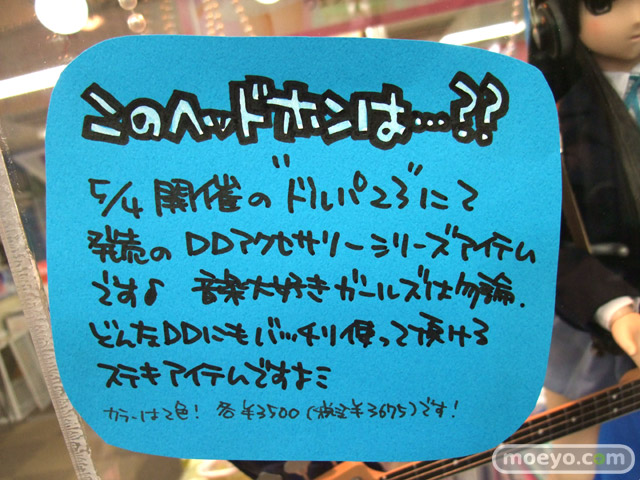 このヘッドホンは…??
5/4 開催の"ドルパ23"にて
発売の DDアクセサリーシリーズアイテム
です♪ 音楽大好きガールズは勿論、
どんなDDにもバッチリ使って頂ける
ステキアイテムですよミ
カラーは2色! 各¥3500(税込¥3675)です!
moeyo.com